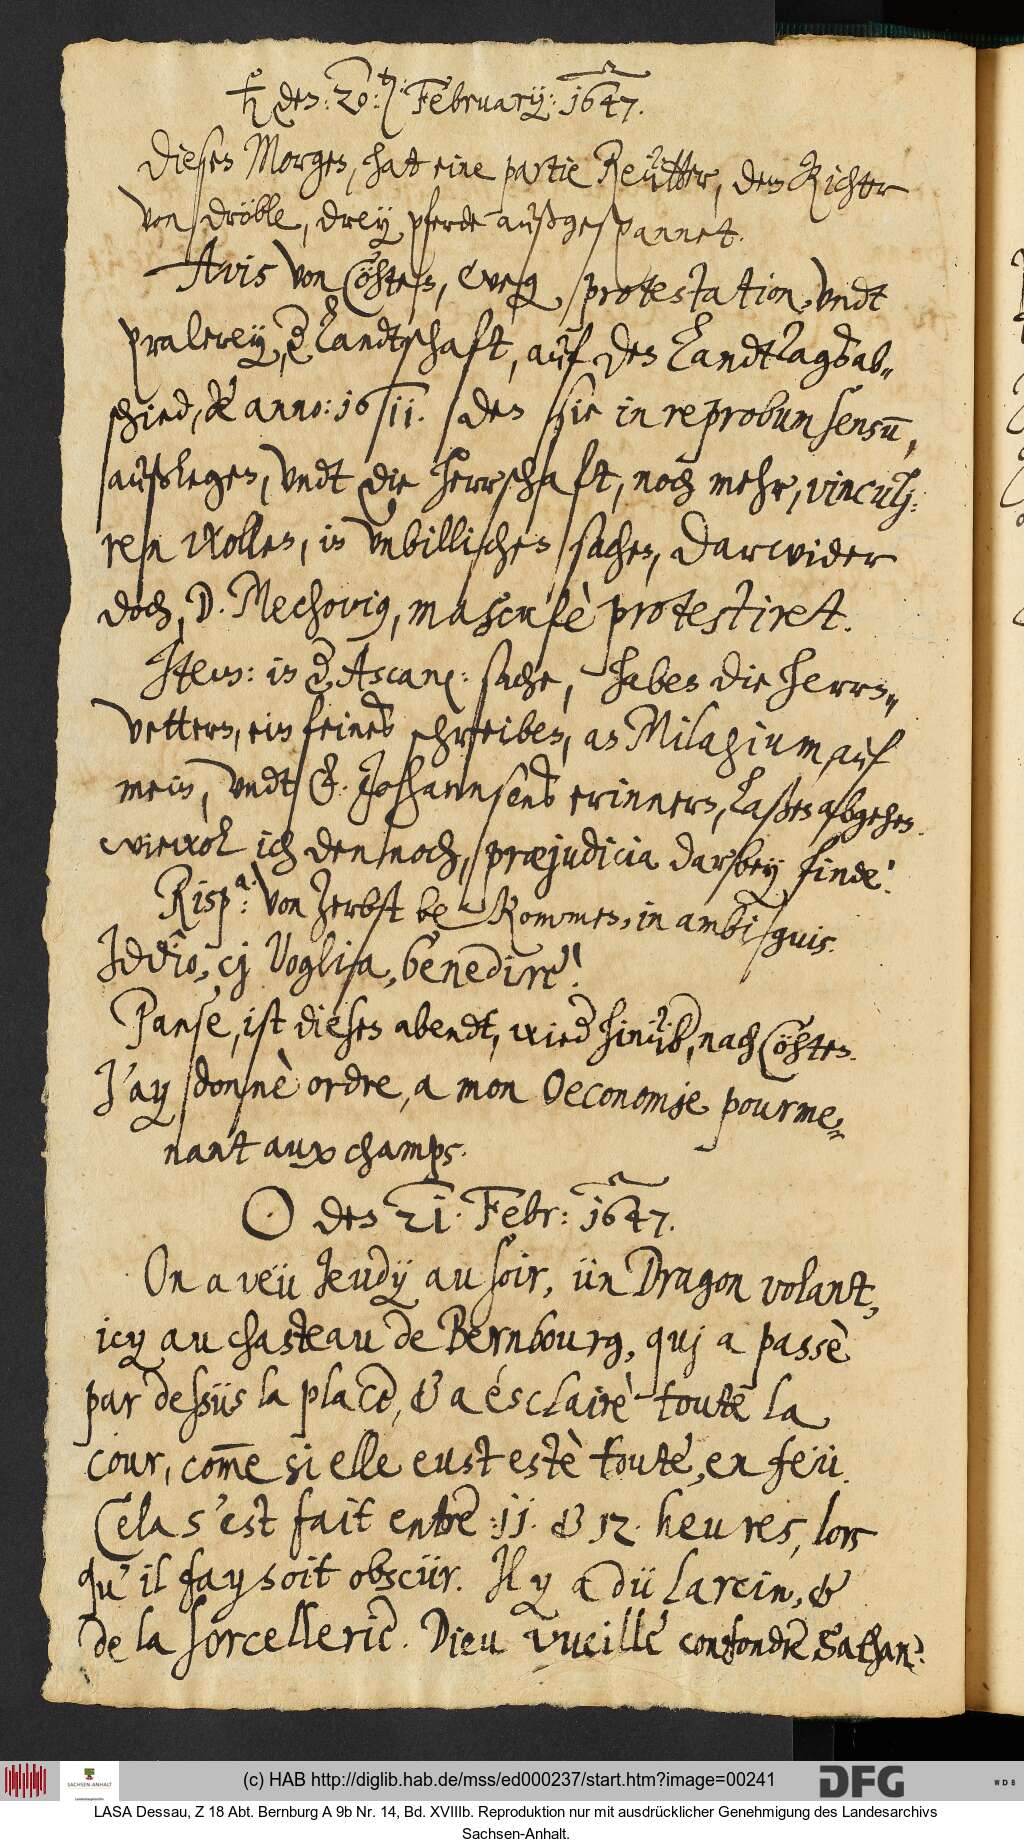 ♄ den: 20:ten Februarij: 1647.
Dieses Morgen, hat eine partie Reütter, den Richter
von dröble, drey pferde außgespannet.
Avis von Cöhten, weg: protestation, undt
pralerey, der Landtschaft, auf den Landttagsab-
schied, de anno: 1611. den sie in reprobum sensum,
außlegen, undt die herrschaft, noch mehr, vincul[i]-
ren wollen, in unbillichen sachen, darwider
doch, D. Mechovius, masculè protestiret.
Item: in der Ascan: sache, haben die herrn
vettern, ein feines schreiben, an Milagium auf
mein, undt Johannsens erinnern, laßen abgehen
wiewol ich dennoch, præjudicia darbey finde!
Rispa: von Zerbst bekommen, in ambiguis.
Iddio, cj voglia, benedire!
Panse, ist diesen abendt, wieder hinüber, nach Cöhten.
J'ay donnè ordre, a mon Oeconomie pourme-
nant aux champs.
☉ den 21. Febr: 1647.
On a veü Jeudy au soir, ün Dragon volant,
icy au chasteau de Bernbourg, quj a passè
par dessüs la place, & a ésclairè toute la
cour, come si elle eust estè toute, en feü.
Cela s'est fait entre 11. & 12. heures, lors
qu'il faysoit obscür. Il y a dü larcin, &
de la sorcellerie. Dieu vueille confondre Sathan!
(c) HAB http://diglib.hab.de/mss/ed000237/start.htm?image=00241
SACHSEN-ANHALT
DFG
WDB
LASA Dessau, Z 18 Abt. Bernburg A 9b Nr. 14, Bd. XVIIIb. Reproduktion nur mit ausdrücklicher Genehmigung des Landesarchivs
Sachsen-Anhalt.